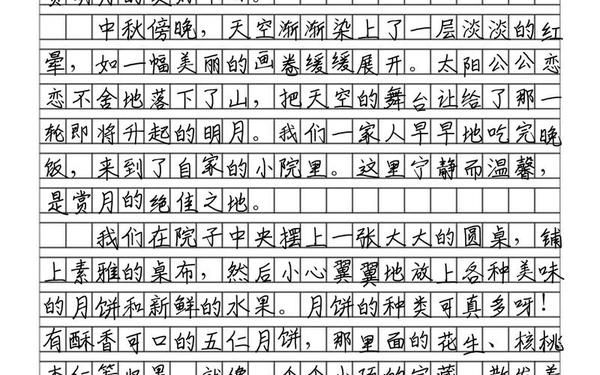 中秋傍晚，天空渐渐染上了一层淡淡的红
晕，如一幅美丽的画卷缓缓展开。太阳公公恋
恋不舍地落下了山，把天空的舞台让给了那一
轮即将升起的明月。我们一家人早早地吃完晚
饭，来到了自家的小院里。这里宁静而温馨，
是赏月的绝佳之地。
我们在院子中央摆上一张大大的圆桌，铺
上素雅的桌布，然后小心翼翼地放上各种美味
的月饼和新鲜的水果。月饼的种类可真多呀！
有酥香可口的五仁月饼，那里面的花生、核桃